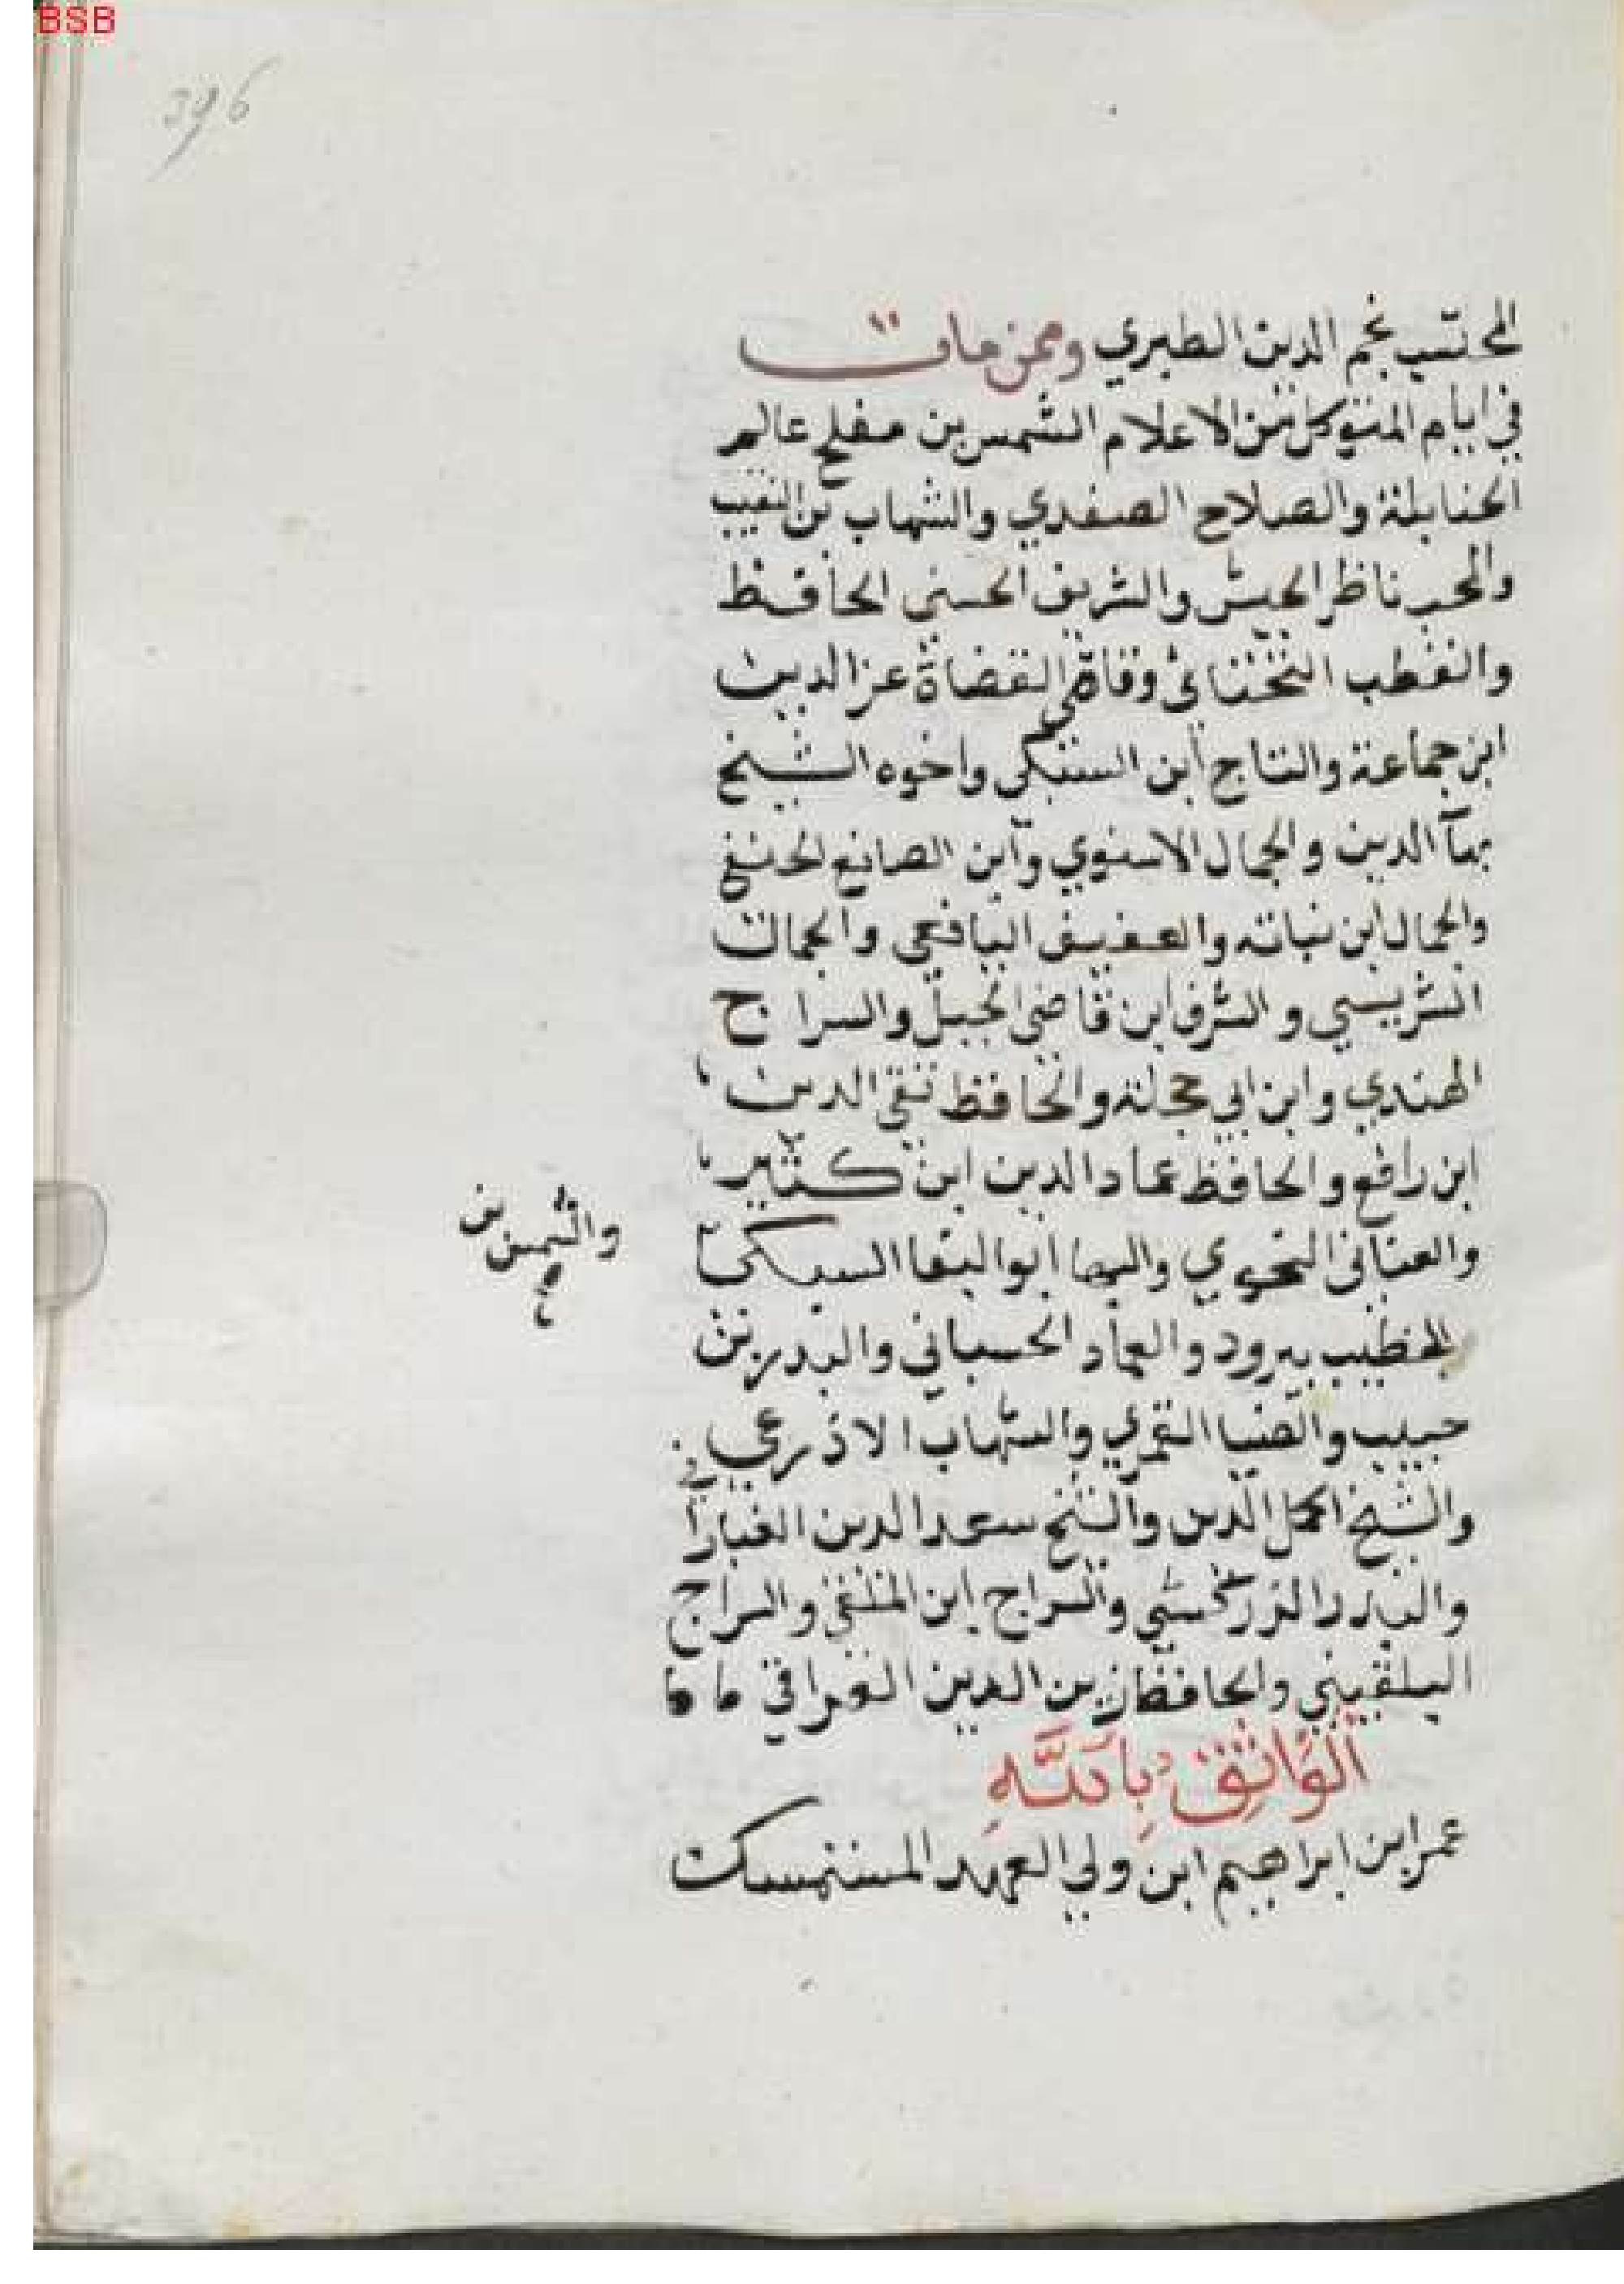 BSB
396
المحتسب نجم الدين الطبري وممن مات
في ايام المتوكل من الاعلام الشمس بن مفلح عالم
الحنابلة والصلاح الصفدي والشهاب بن النقيب
والمحب ناظر الجيش والشريف الحسني الحافظ
والقطب التختاني وقاضي القضاة عز الدين
ابن جماعة والتاج ابن السبكي واخوه الشيخ
بهآ الدين والجمال الاسنوي وابن الصايغ الحنفي
والجمال ابن نباته والعفيف اليافعي والجمال
الشريسي والشرف ابن قاضي الجبل والسراج
الهندي وابن ابي حجلة والحافظ تقي الدين
ابن رافع والحافظ عماد الدين ابن كثير
والعتابي النحوي والبها ابو البقا السبكي
والشمس بن
خطيب بيرود والعماد الحسباني والبدر بن
حبيب والضيا القرمي والشهاب الاذرعي
والشيخ اكمل الدين والشيخ سعد الدين
والبدر الزركشي والسراج ابن الملقن والسراج
البلقيني والحافظ زين الدين العراقي
الواثق بالله
عمر ابن ابراهيم ابن ولي العهد المستمسك